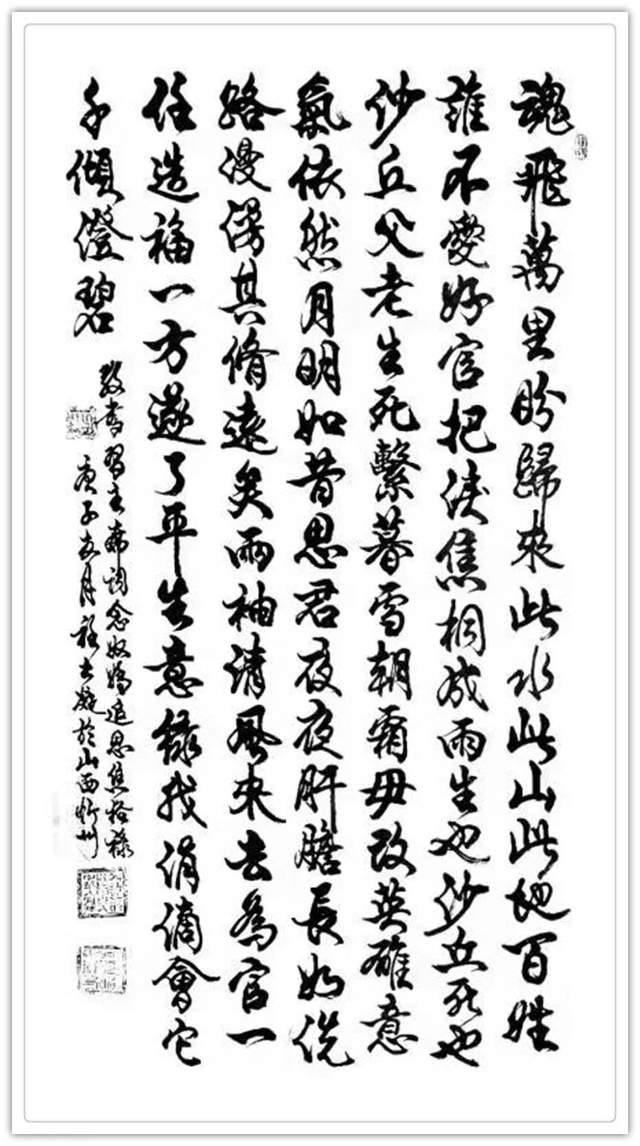 魂飛萬里盼歸來此水此山此地百姓
誰不愛好官把淚焦桐成雨生也沙丘死也
沙丘父老生死繫暮雪朝霜毋改英雄意
氣依然月明如昔思君夜夜肝膽長如洗
路漫漫其脩遠矣兩袖清風來去為官一
任造福一方遂了平生意綠我涓滴會它
千傾澄碧
敬書習主席詞念奴嬌追思焦裕祿
庚子月書於山西忻州